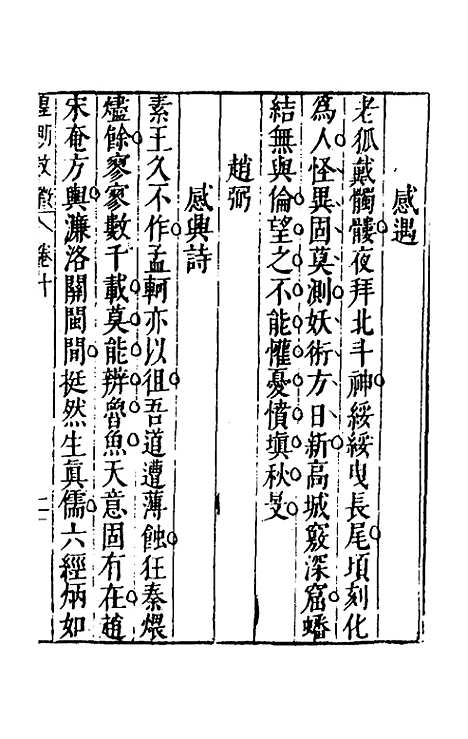 感遇
老狐戴髑髏夜拜北斗神綏綏曳長尾頃刻化
爲人怪異固莫測妖術方日新高城竅深窟蟠
結無與倫望之不能懼憂憤塡秋旻
趙弼
感興詩
素王久不作孟軻亦以徂吾道遭薄蝕狂秦煨
燼餘寥寥數千載莫能辨魯魚天意固有在趙
宋奄方輿濂洛關閩間挺然生眞儒六經炳如
皇明 卷十